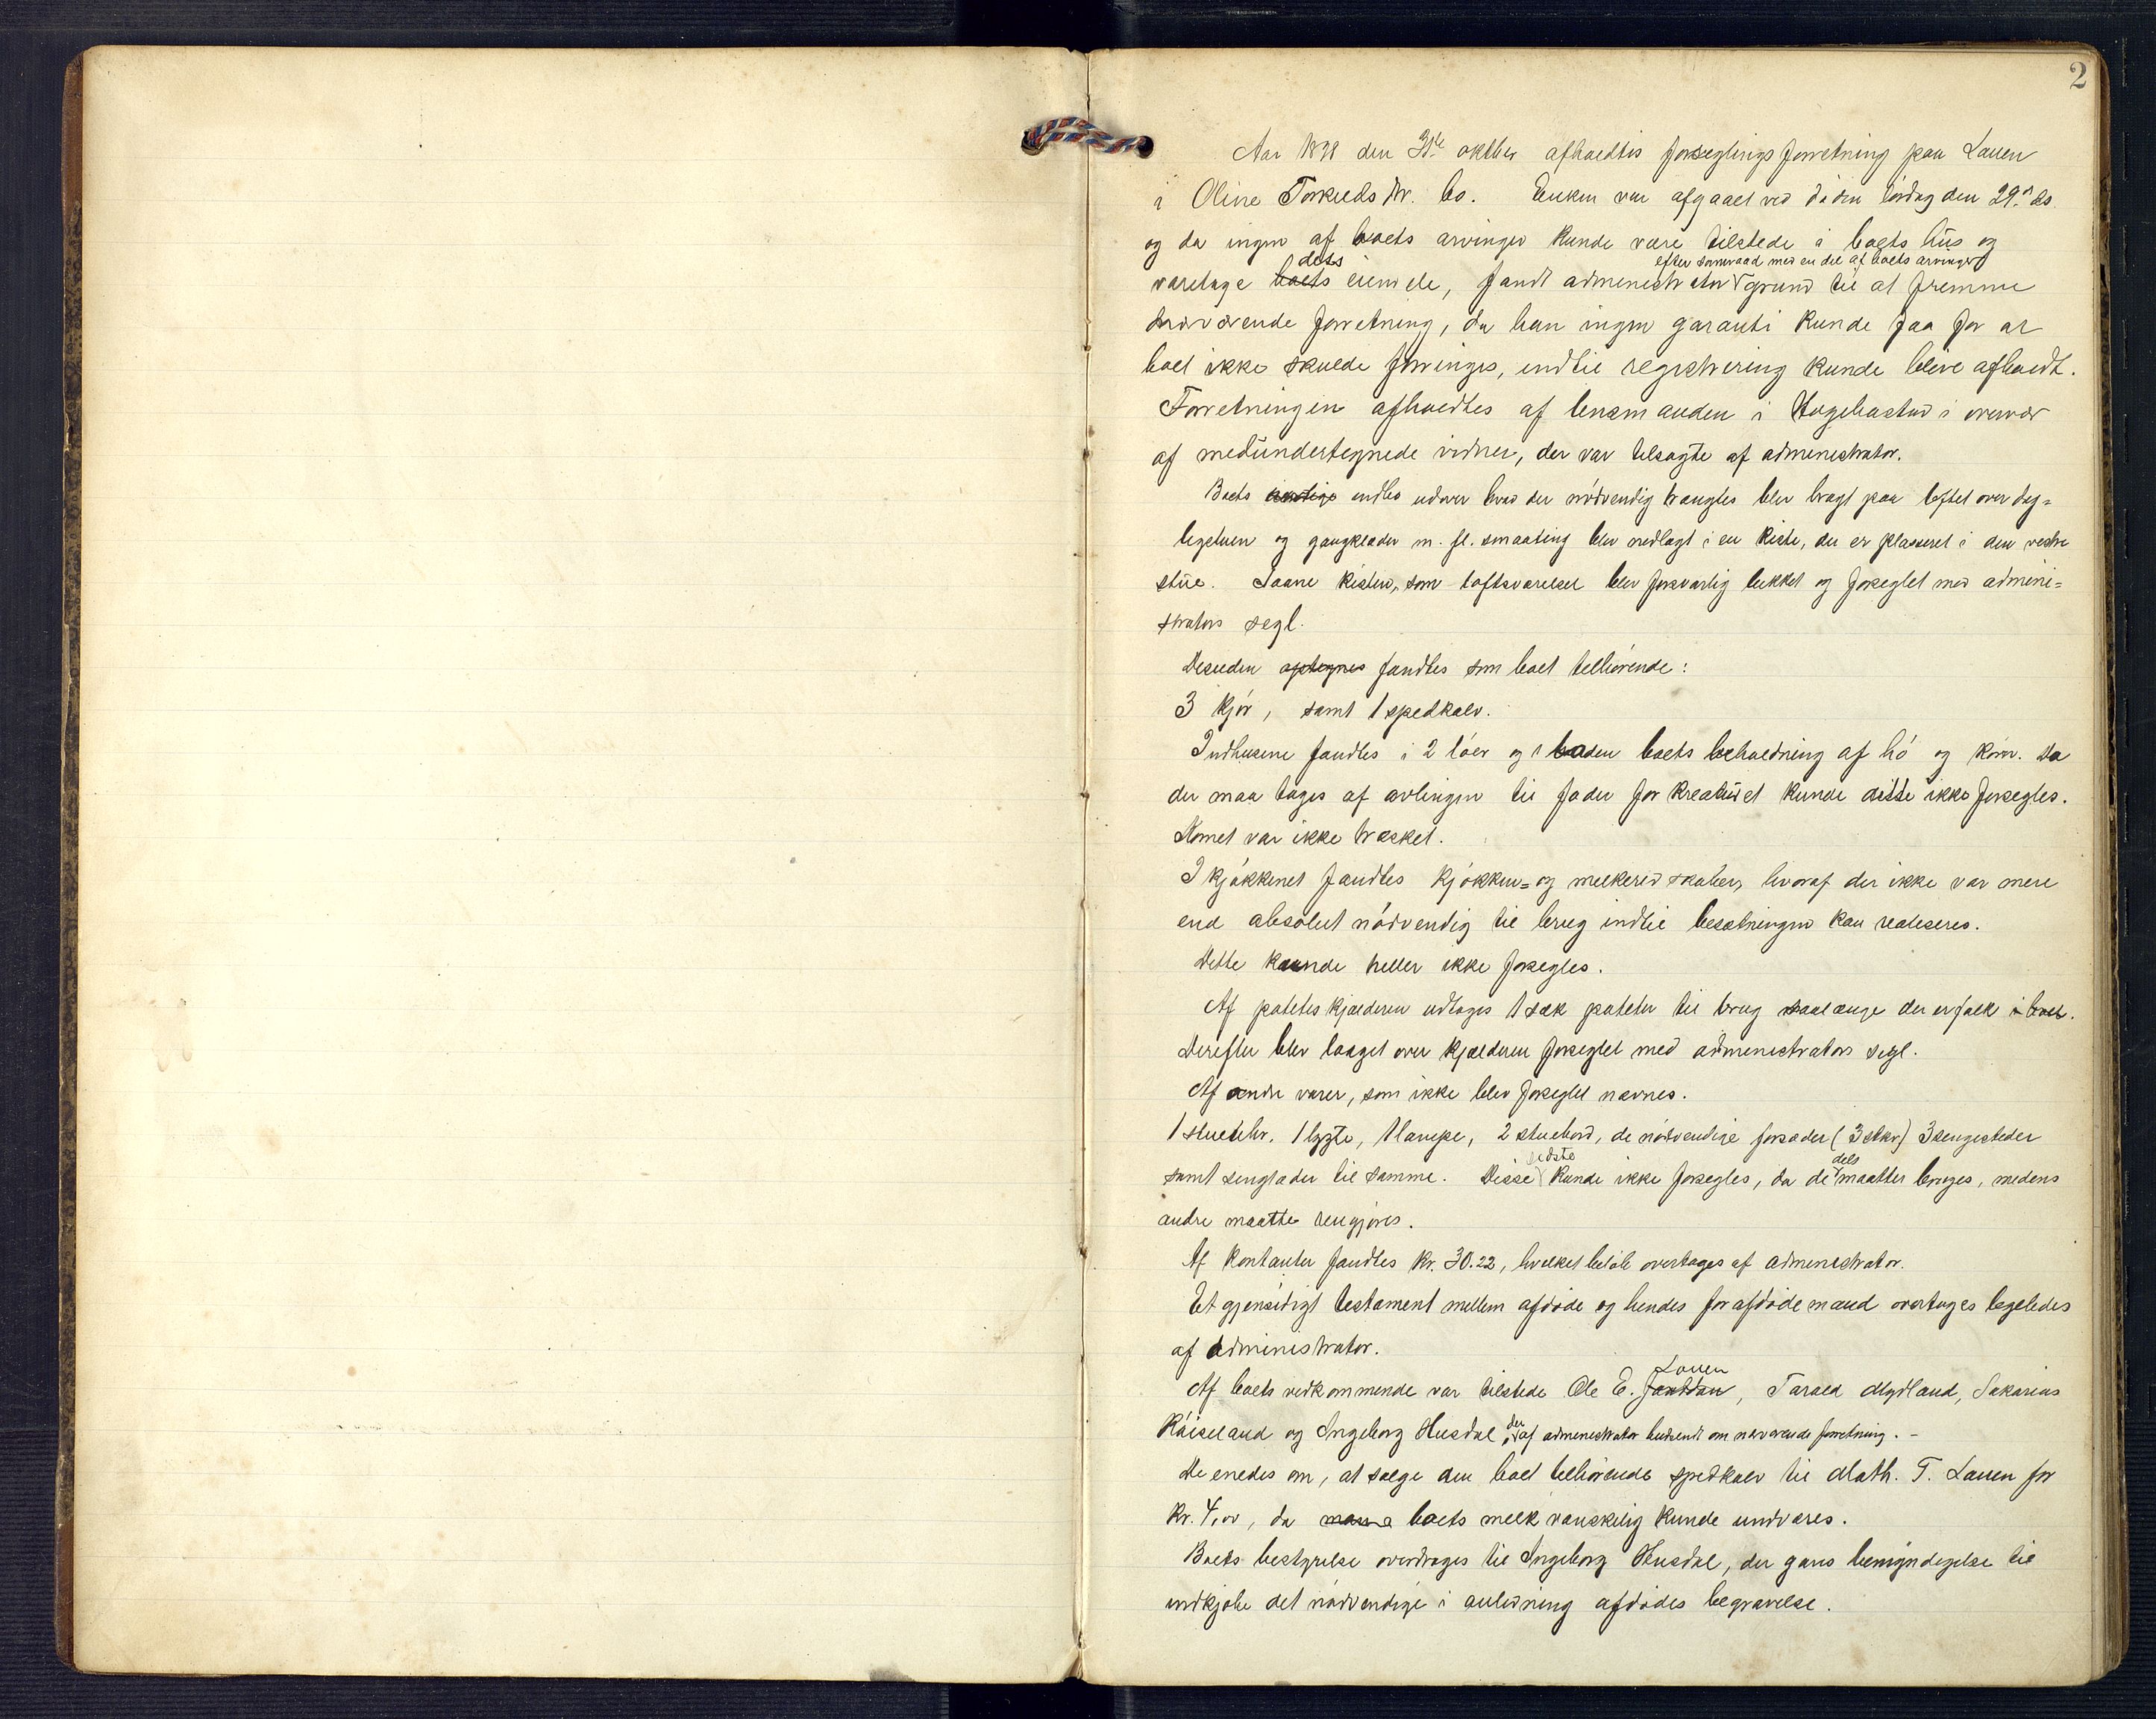 2
Aar 1898 den 31te oktber afholdtes forseglingsforretning paa Lauen
i Oline Torkelds Dr. bo. Enken var afgaaet ved døden lördag den 29. ds
og da ingen af boets arvinger kunde være tilstede i boets hus og
dets efter samraad med en del af boets arvinger
varetage boets eiendele, fandt administrator grund til at fremme
nærværende forretning, da han ingen garanti kunde faa for at
boet ikke skulde forringes, indtil registrering kunde blive afholdt.
Forretningen afholdtes af lensmanden i Hægebostad i overvær
af medundertegnede vidner, der var tilsagte af administrator.
Boets indbo udover hvad der nödvendig trængtes blev bragt paa loftet over dag=
ligstuen og gangklæder m. fl. smaating blev nedlagt i en kiste, der er plasseret i den vestre
stue. Saavel kisten, som loftsværelset blev forsvarlig lukket og forseglet med admini=
strators segl.
Desuden optegnes fandtes som boet tilhörende:
3 kjör, samt 1 spedkalv.
I udhusene fandtes i 2 löer og 1 boden boets beholdning af hö og korn. Da
der maa tages af avlingen til foder for kreaturet kunde dette ikke forsegles.
Kornet var ikke træsket.
I kjökkenet fandtes kjökken= og melkeredskaber, hvoraf der ikke var mere
end absolut nödvendig til brug indtil besætningen kan realiseres.
Dette kunde heller ikke forsegles.
Af potetkjælderen udtoges 1 sæk poteter til brug saalænge der er folk i boet.
Derefter blev laaget over kjælderen forseglet med administrators segl.
Af andre varer, som ikke blev forseglet nævnes.
1 stueuhr. 1 lygte, 1 lampe, 2 stuebord, de nödvendige forsæder (3 stkr) 3 sengesteder
sidste dels
samt sengklæder til samme. Disse kunde ikke forsegles, da de maatte bruges, medens
andre maatte rengjöres.
Af kontanter fandtes kr. 30.22, hvilket belöb overtages af administrator.
Et gjensidigt testament mellem afdöde og hendes forafdöde mand overtoges ligeledes
af administrator.
Lauen
Af boets vedkommende var tilstede Ole E. , Tarald Mydland, Sakarias
der
Röiseland og Ingeborg Husdal af administrator budsendt om nærværende forretning. -
De enedes om, at sælge den boet tilhörende spedkalv til Math. T. Lauen for
kr. 4,00, da boets melk vanskelig kunde undværes.
Boets bestyrelse overdroges til Ingeborg Husdal, der gaves bemyndigelse til
indkjöbe det nödvendige i anledning afdödes begravelse.